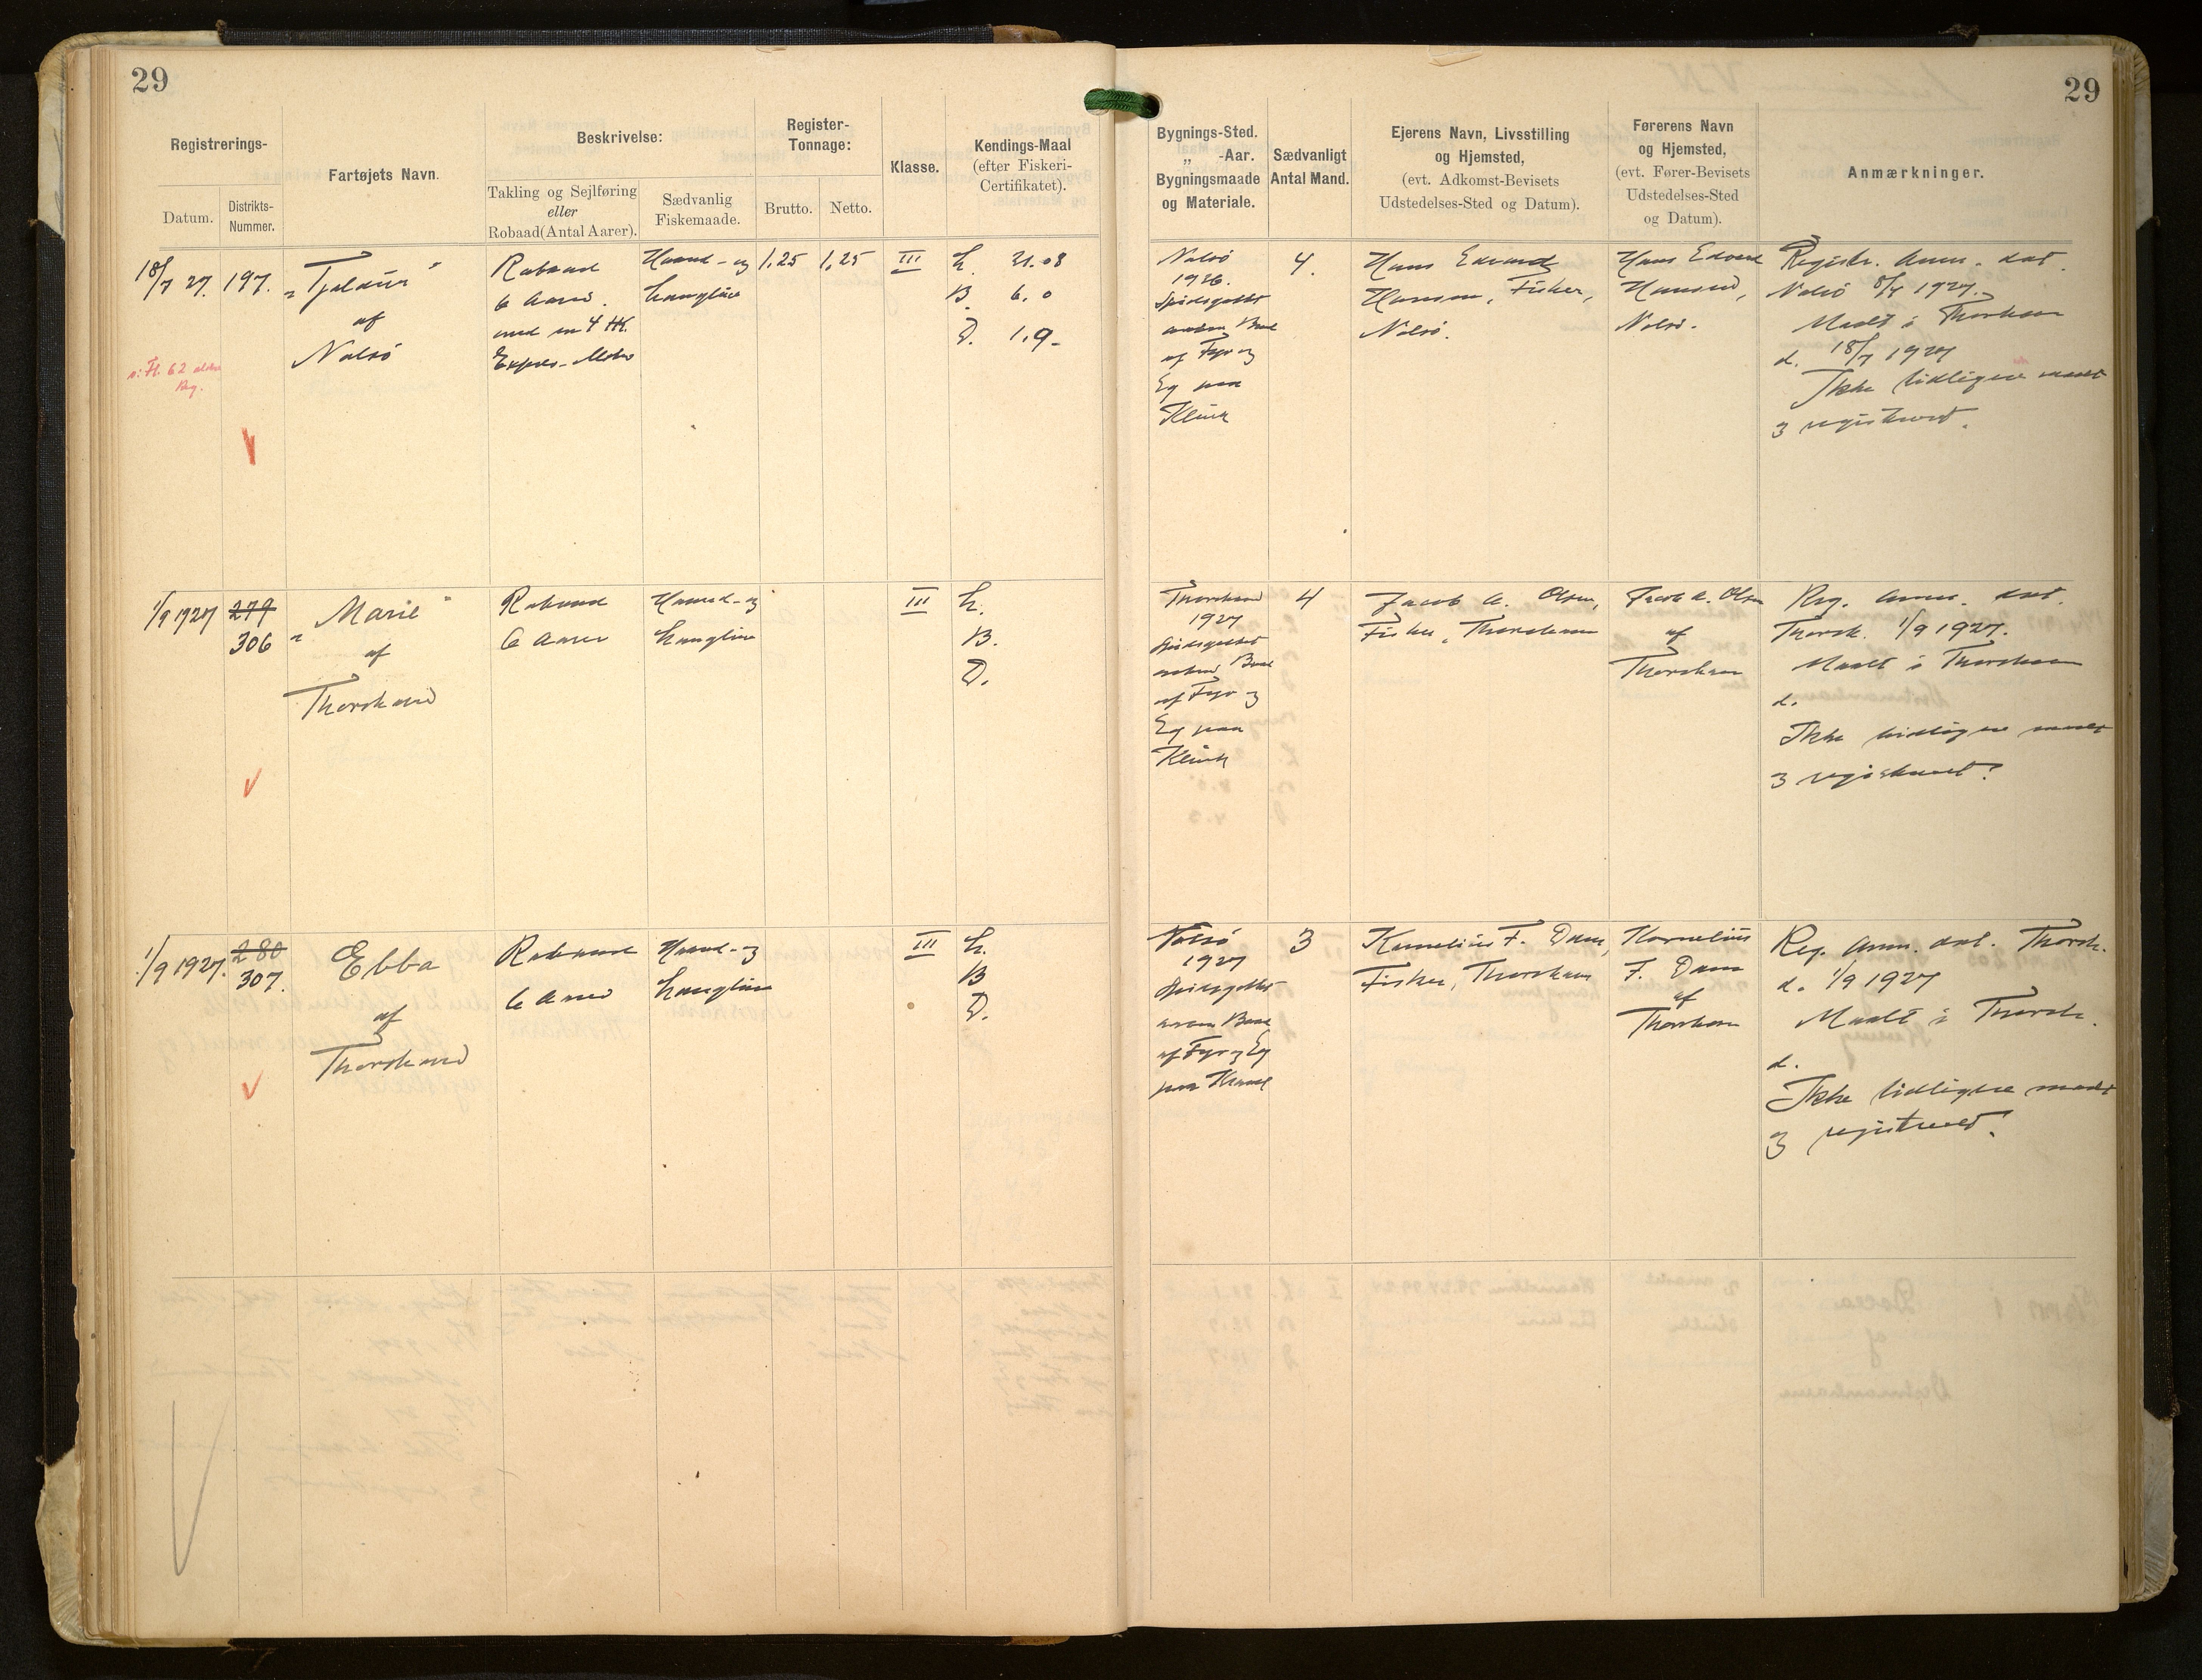 29
29
Registrerings-
Datum.
Distrikts-
Nummer.
Fartøjets Navn.
Beskrivelse:
Takling og Sejlføring
eller
Robaad(Antal Aarer).
Sædvanlig
Fiskemaade.
Register-
Tonnage:
Brutto.
Netto.
Klasse.
Kendings-Maal
(efter Fiskeri-
Certifikatet).
Bygnings-Sted.
„ -Aar.
Bygningsmaade
og Materiale.
Sædvanligt
Antal Mand.
Ejerens Navn, Livsstilling
og Hjemsted,
(evt. Adkomst-Bevisets
Udstedelses-Sted og Datum).
Førerens Navn
og Hjemsted,
(evt. Fører-Bevisets
Udstedelses-Sted
og Datum).
Anmærkninger.
18/7 27.
197.
„Tjaldur"
af
Nolsö
Robaad
6 Aarer.
med en 4 HK.
Expres-Motor
Haand- og
Langline
1,25
1,25
III
L. 21.08
B. 6.0
D. 1.9-
Nolsö
1926.
Spidsgattet
aaben Baad
af Fyr og
Eg paa
Klink
4.
Hans Edvard
Hansen, Fisker,
Nolsö.
Hans Edvard
Hansen,
Nolsö.
Registr. Anm. dat.
Nolsö 8/4 1927.
Maalt i Thorshavn
d. 18/7 1927
Ikke tidligere maalt
og registreret.
1/9 1927
279
306
„Marie"
af
Thorshavn
Robaad
6 Aarer
Haand- og
Langline
III
L.
B.
D.
Thorshavn
1927
Spidsgattet
aaben Baad
af Fyr og
Eg paa
Klink
4
Jacob A. Olsen,
Fisker, Thorshavn
Jacob A. Olsen
af
Thorshavn
Reg. Anm. dat.
Thorsh. 1/9 1927.
Maalt i Thorshavn
d.
Ikke tidligere maalt
og registreret.
1/9 1927.
280
307.
Ebba
af
Thorshavn
Robaad
6 Aarer
Haand- og
Langline
III
L.
B
D.
Nolsö
1927
Spidsgattet
aaben Baad
af Fyr og Eg
paa Kravel
3
Kornelius F. Dam,
Fisker, Thorshavn
Kornelius
F. Dam
af
Thorshavn
Reg. Anm. dat. Thorsh.
d. 1/9 1927
Maalt i Thorsh.
d.
Ikke tidligere maalt
og registreret.